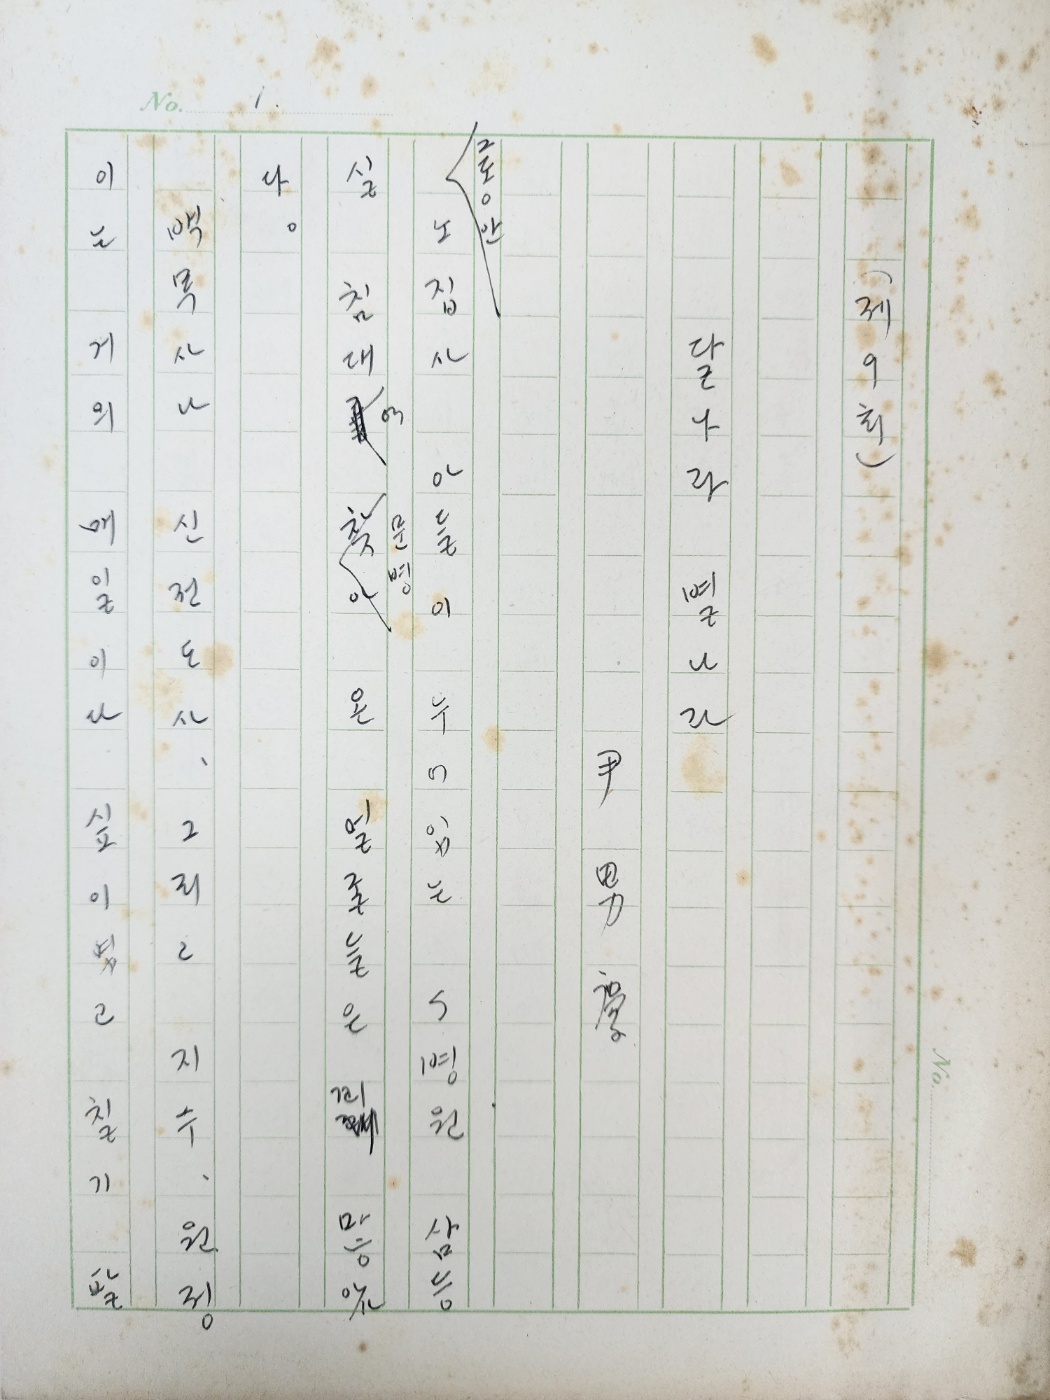 No. 1.
(제9회)
달나라 별나라
尹男慶
그동안
노집사 아들이 누어있는 S병원 삼등
에 문병
실 침대 찾아 온 얼굴들은 많았
다。
백목사나 신전도사、그리고 지수、원정
이는 거의 매일이다 싶이 였고 칠기 팔
No.